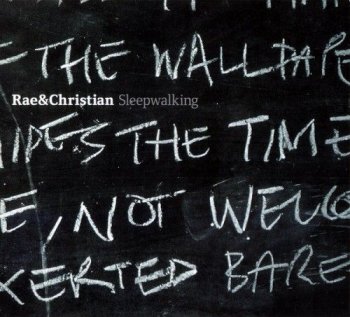 THE WALLPAPE
Rae&Christian Sleepwalking
IDES THE TIME
E, NOT WELCO
XERTED BARE